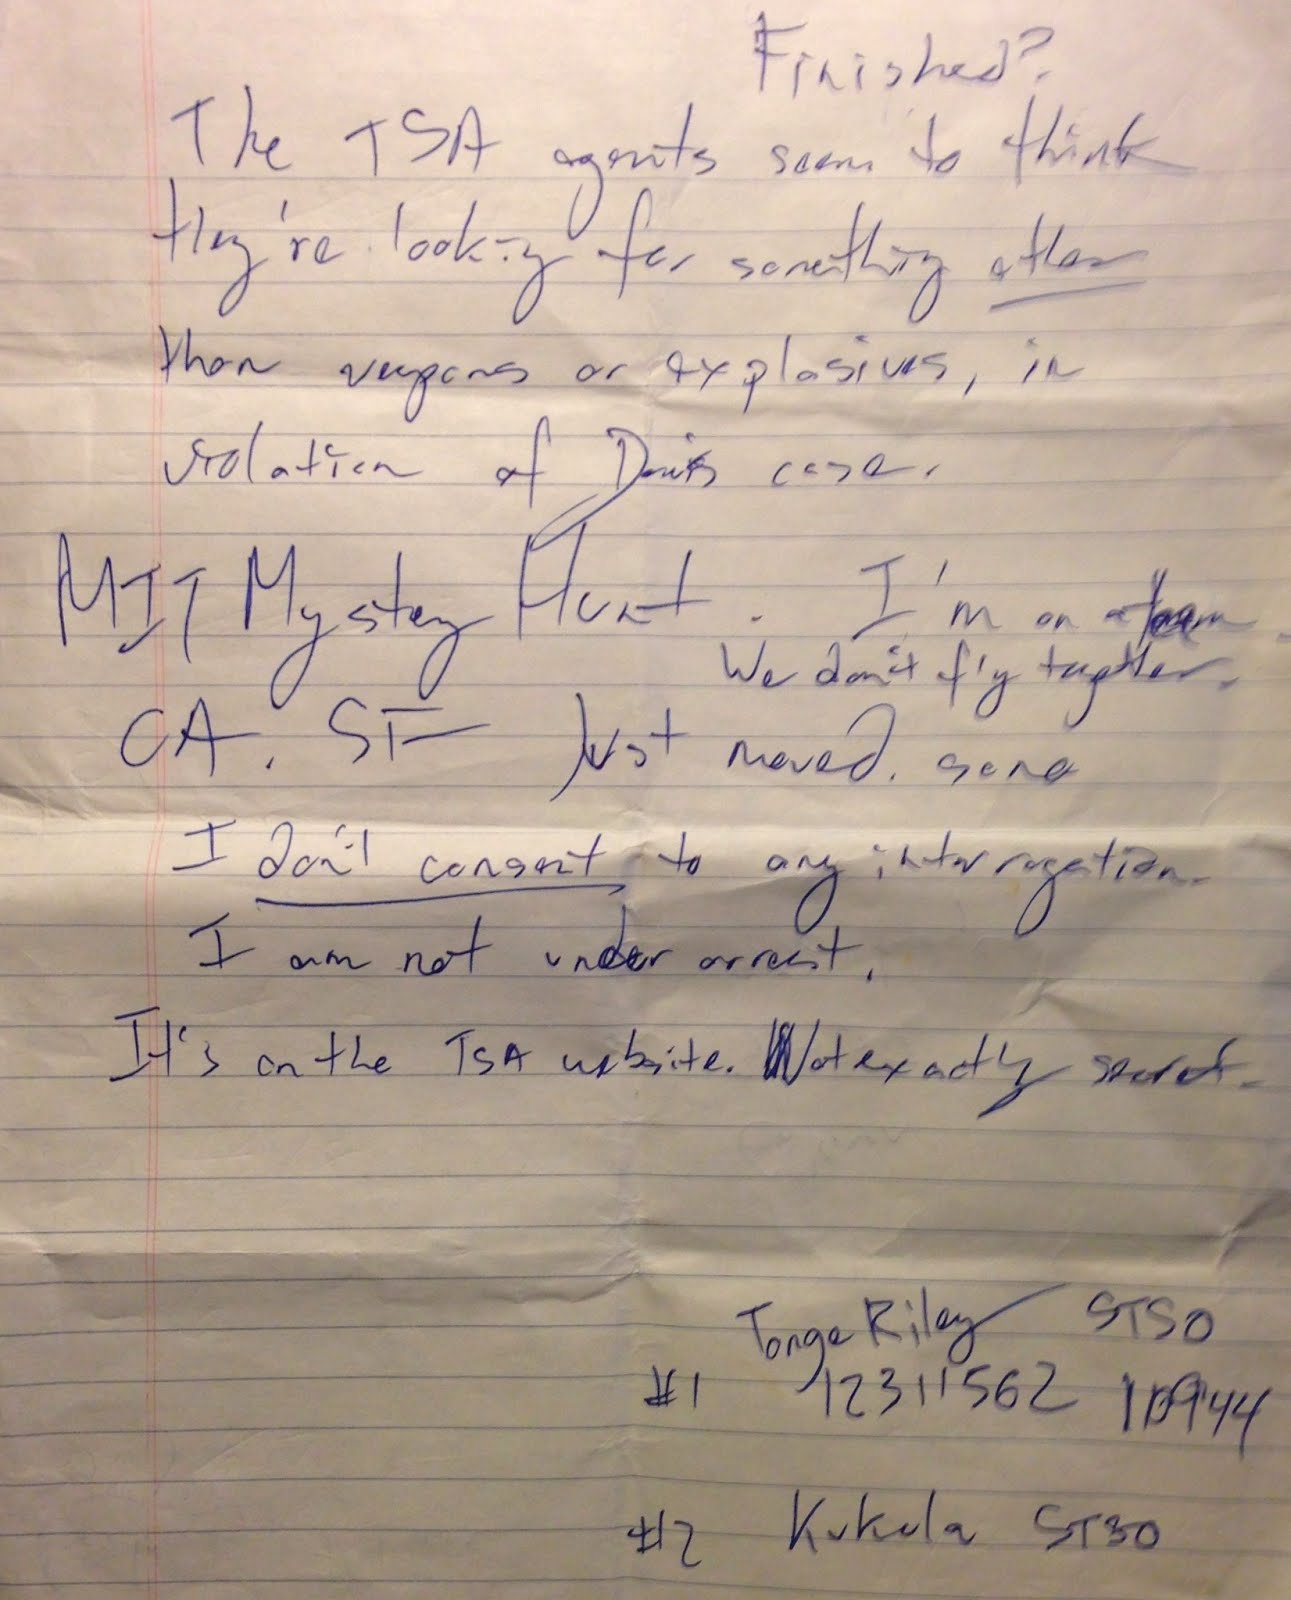 Finished?
The TSA agents seem to think
they're looking for something other
than weapons or explosives, in
violation of Davis case.
MIT Mystery Hunt. I'm on a team.
We don't fly together.
CA. SF Just moved. some
I don't consent to any interrogation.
I am not under arrest.
It's on the TSA website. Not exactly secret.
Tonge Riley STSO
#1 12311562
#2 Kukula STSO